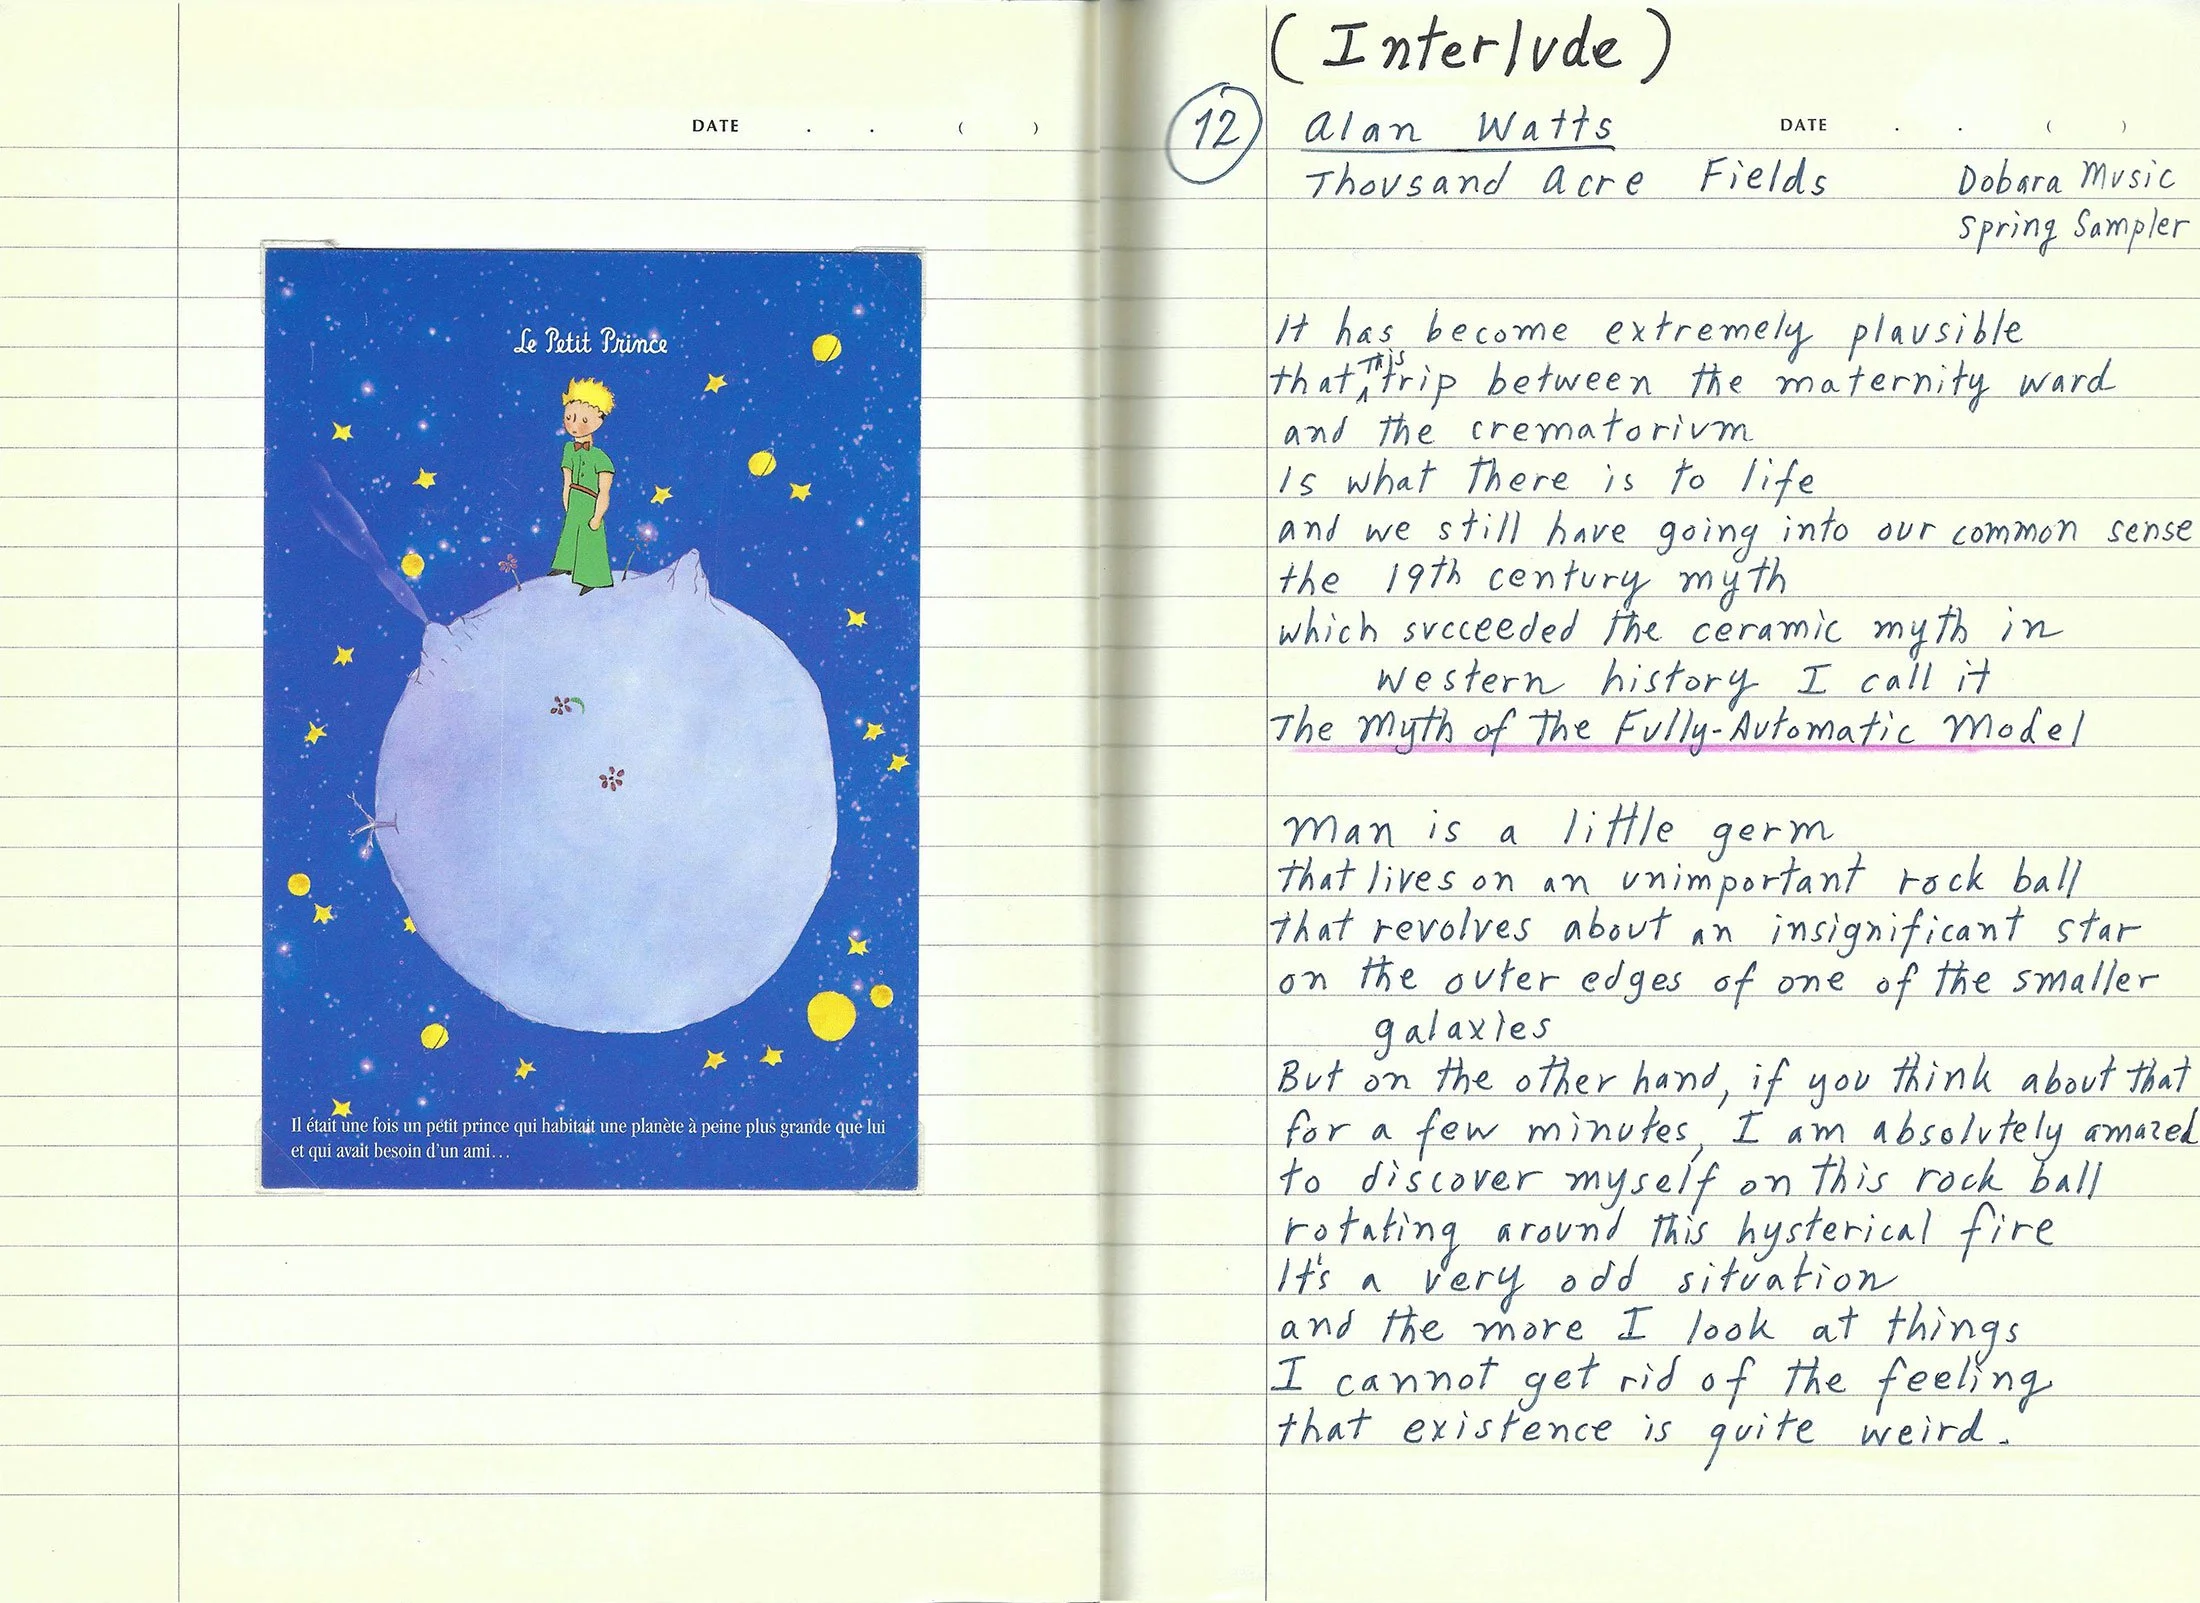 DATE . . ( )
Le Petit Prince
Il était une fois un petit prince qui habitait une planète à peine plus grande que lui
et qui avait besoin d'un ami...
(Interlude)
12
Alan Watts
DATE . . ( )
Thousand Acre Fields
Dobara Music
Spring Sampler
It has become extremely plausible
that This trip between the maternity ward
and the crematorium
Is what there is to life
and we still have going into our common sense
the 19th century myth
which succeeded the ceramic myth in
Western history I call it
The Myth of The Fully-Automatic Model
Man is a little germ
that lives on an unimportant rock ball
that revolves about an insignificant star
on the outer edges of one of the smaller
galaxies
But on the other hand, if you think about that
for a few minutes, I am absolutely amazed
to discover myself on this rock ball
rotating around this hysterical fire
It's a very odd situation
and the more I look at things
I cannot get rid of the feeling
that existence is quite weird.